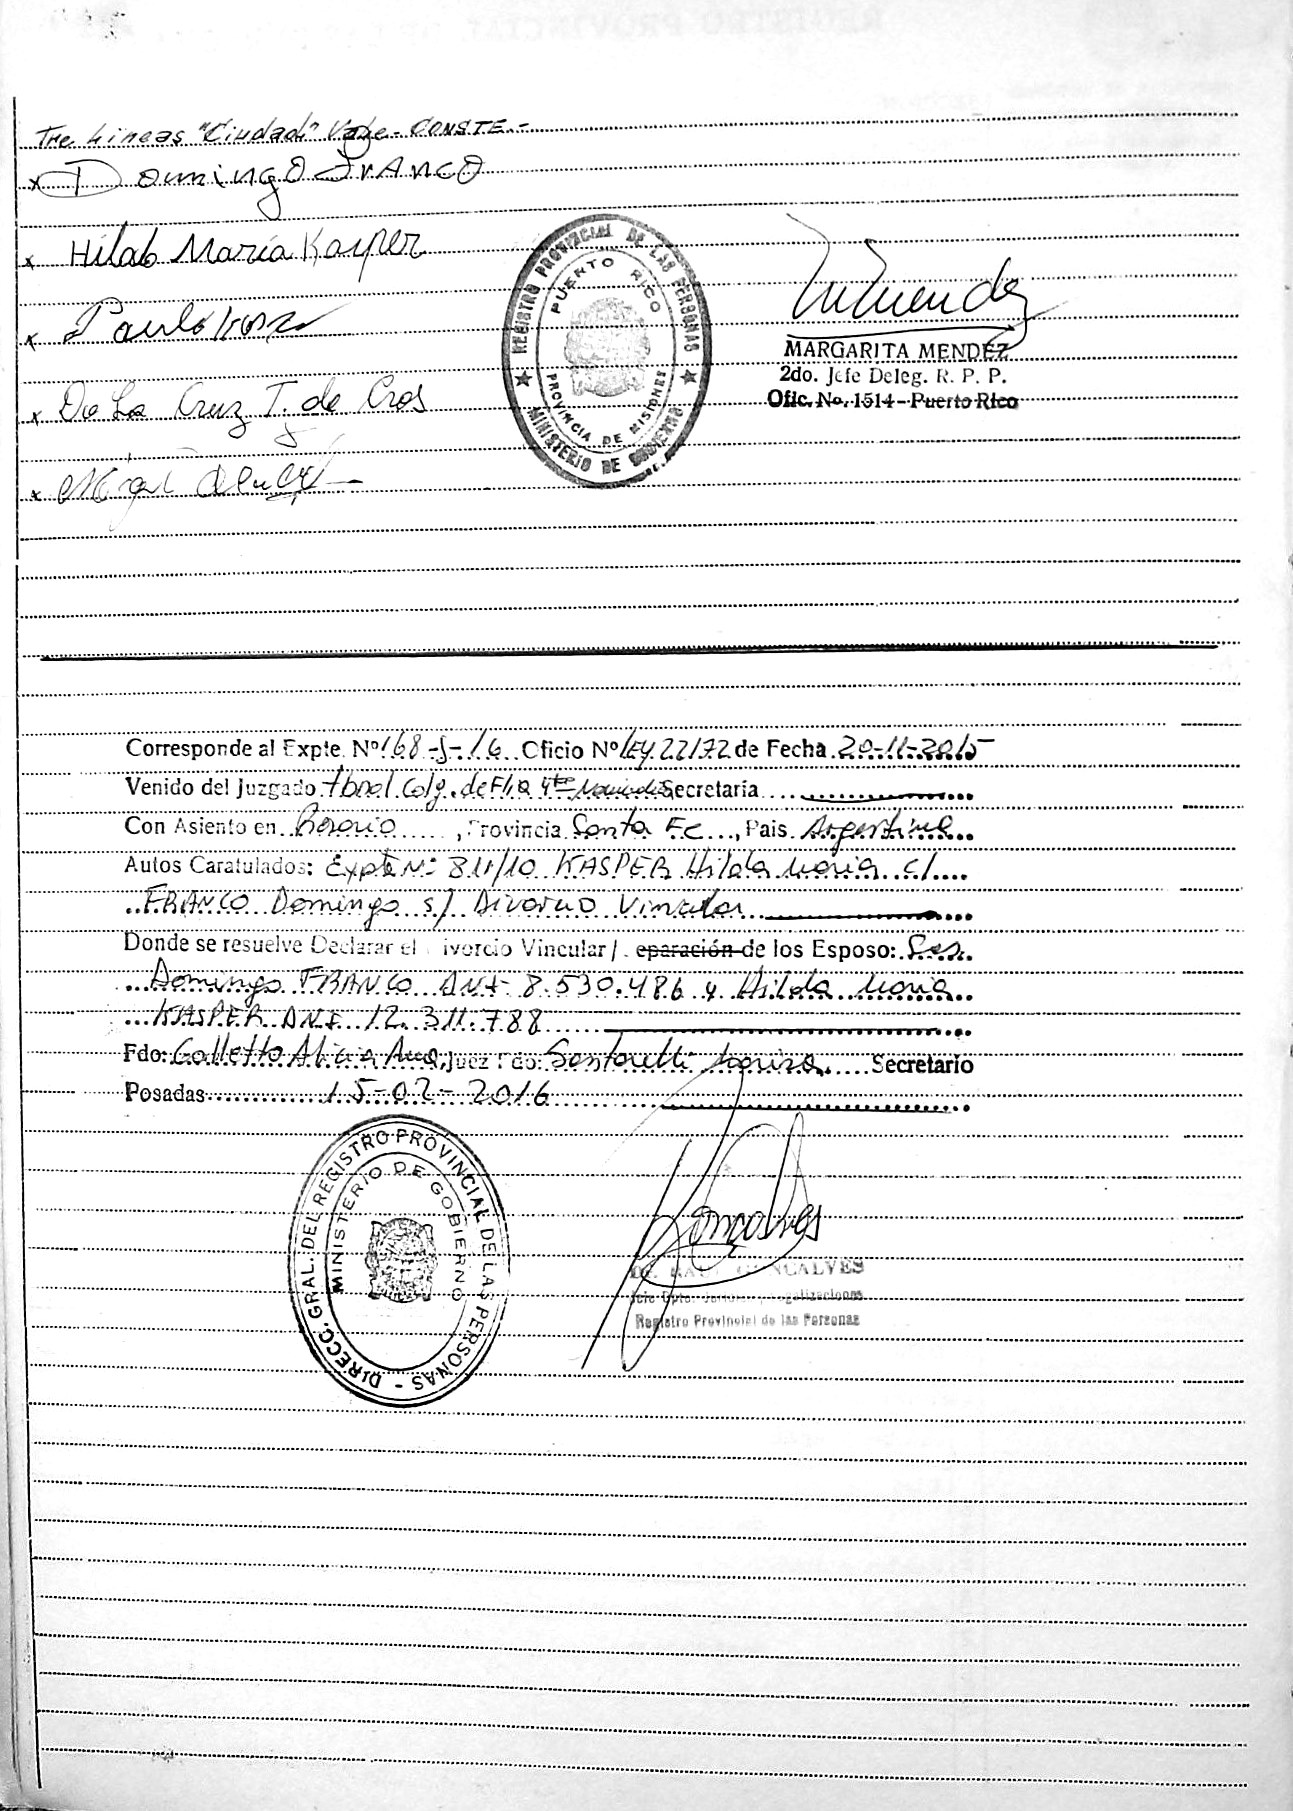 Tre Lineas "Ciudad" Vale - CONSTE.-
x Domingo Franco
x Hilda María Kasper
x Paulo
x De La Cruz T. de Cros
x
REGISTRO PROVINCIAL DE LAS PERSONAS
MINISTERIO DE GOBIERNO
PUERTO RICO
PROVINCIA DE MISIONES
MARGARITA MENDEZ
2do. Jefe Deleg. R. P. P.
Ofic. No. 1514 - Puerto Rico
Corresponde al Expte. Nº 168-J-16 Oficio Nº LEY 22172 de Fecha 20-11-2015
Venido del Juzgado Tbnal. Colg. de Flia 4ta Secretaría
Con Asiento en Rosario, Provincia Santa Fe, Pais Argentina
Autos Caratulados: Expte Nº 811/10 KASPER Hilda Maria c/
FRANCO Domingo s/ Divorcio Vincular
Donde se resuelve Declarar el Divorcio Vincular / eparación de los Esposo: Sres.
Domingo FRANCO DNI 8.530.486 y Hilda Maria
KASPER DNI 12.311.788
Fdo: Galletto Alicia Ana, Juez Fdo: Santorelli Marisa Secretario
Posadas 15-02-2016
DIRECC. GRAL. DEL REGISTRO PROVINCIAL DE LAS PERSONAS -
MINISTERIO DE GOBIERNO
Goncalves
Dr. RAUL GONCALVES
Jefe Dpto. y Legalizaciones
Registro Provincial de las Personas